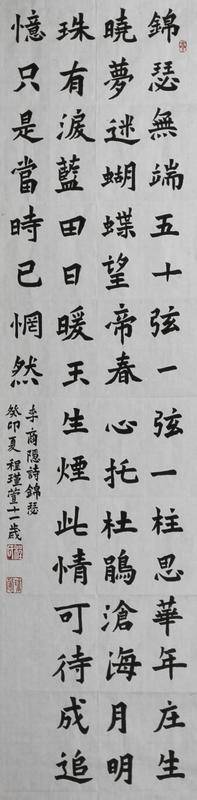 錦瑟無端五十弦一弦一柱思華年庄生
曉夢迷蝴蝶望帝春心托杜鵑滄海月明
珠有淚藍田日暖玉生煙此情可待成追
憶只是當時已惘然
李商隱詩錦瑟
癸卯夏程瑾萱十一歲